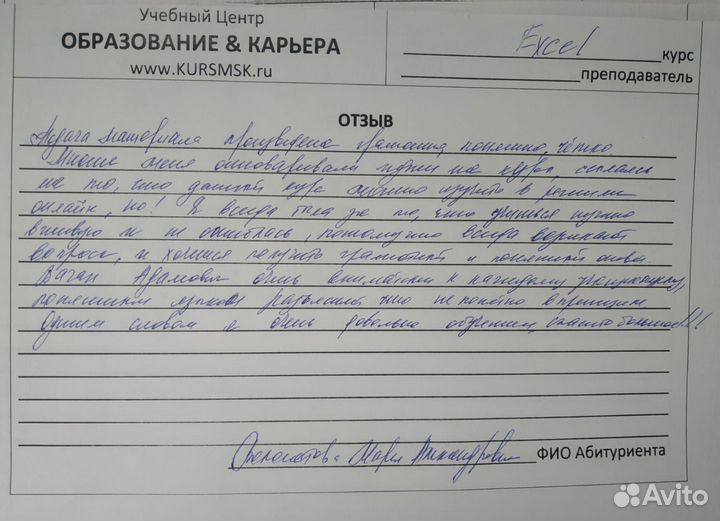 Учебный Центр
ОБРАЗОВАНИЕ & КАРЬЕРА
www.KURSMSK.ru
Excel курс
преподаватель
ОТЗЫВ
Подача материала произведена грамотна, понятно, чётко
Многие меня отговаривали идти на курсы, ссылаясь
на то, что данный курс можно изучить в режиме
онлайн, но! Я всегда была за то, что учиться нужно
вживую и не ошиблась, потому что всегда возникают
вопросы, и хочется получить грамотный и понятный ответ.
Ваган Адамович очень внимателен к каждому
понятным языком разъяснит что не понятно в принципе
Одним словом я очень довольна обучением, спасибо большое!!!
Мария ФИО Абитуриента
Avito